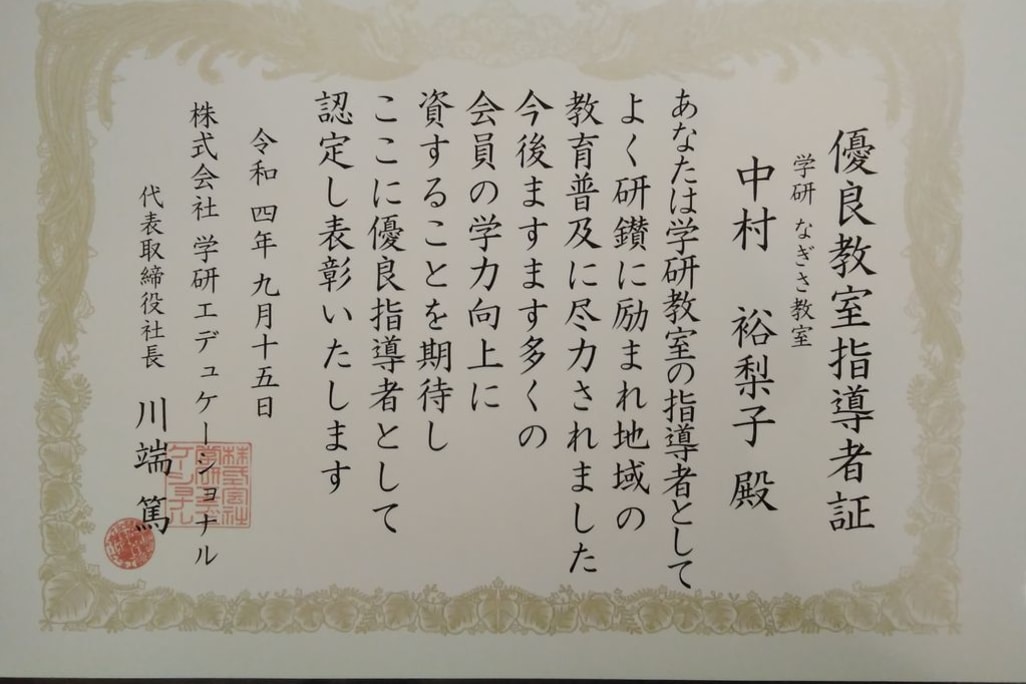 優良教室指導者証
学研 なぎさ教室
中村 裕梨子 殿
あなたは学研教室の指導者として
よく研鑚に励まれ地域の
教育普及に尽力されました
今後ますます多くの
会員の学力向上に
資することを期待し
ここに優良指導者として
認定し表彰いたします
令和 四年 九月十五日
株式会社 学研エデュケーショナル
代表取締役社長 川端 篤